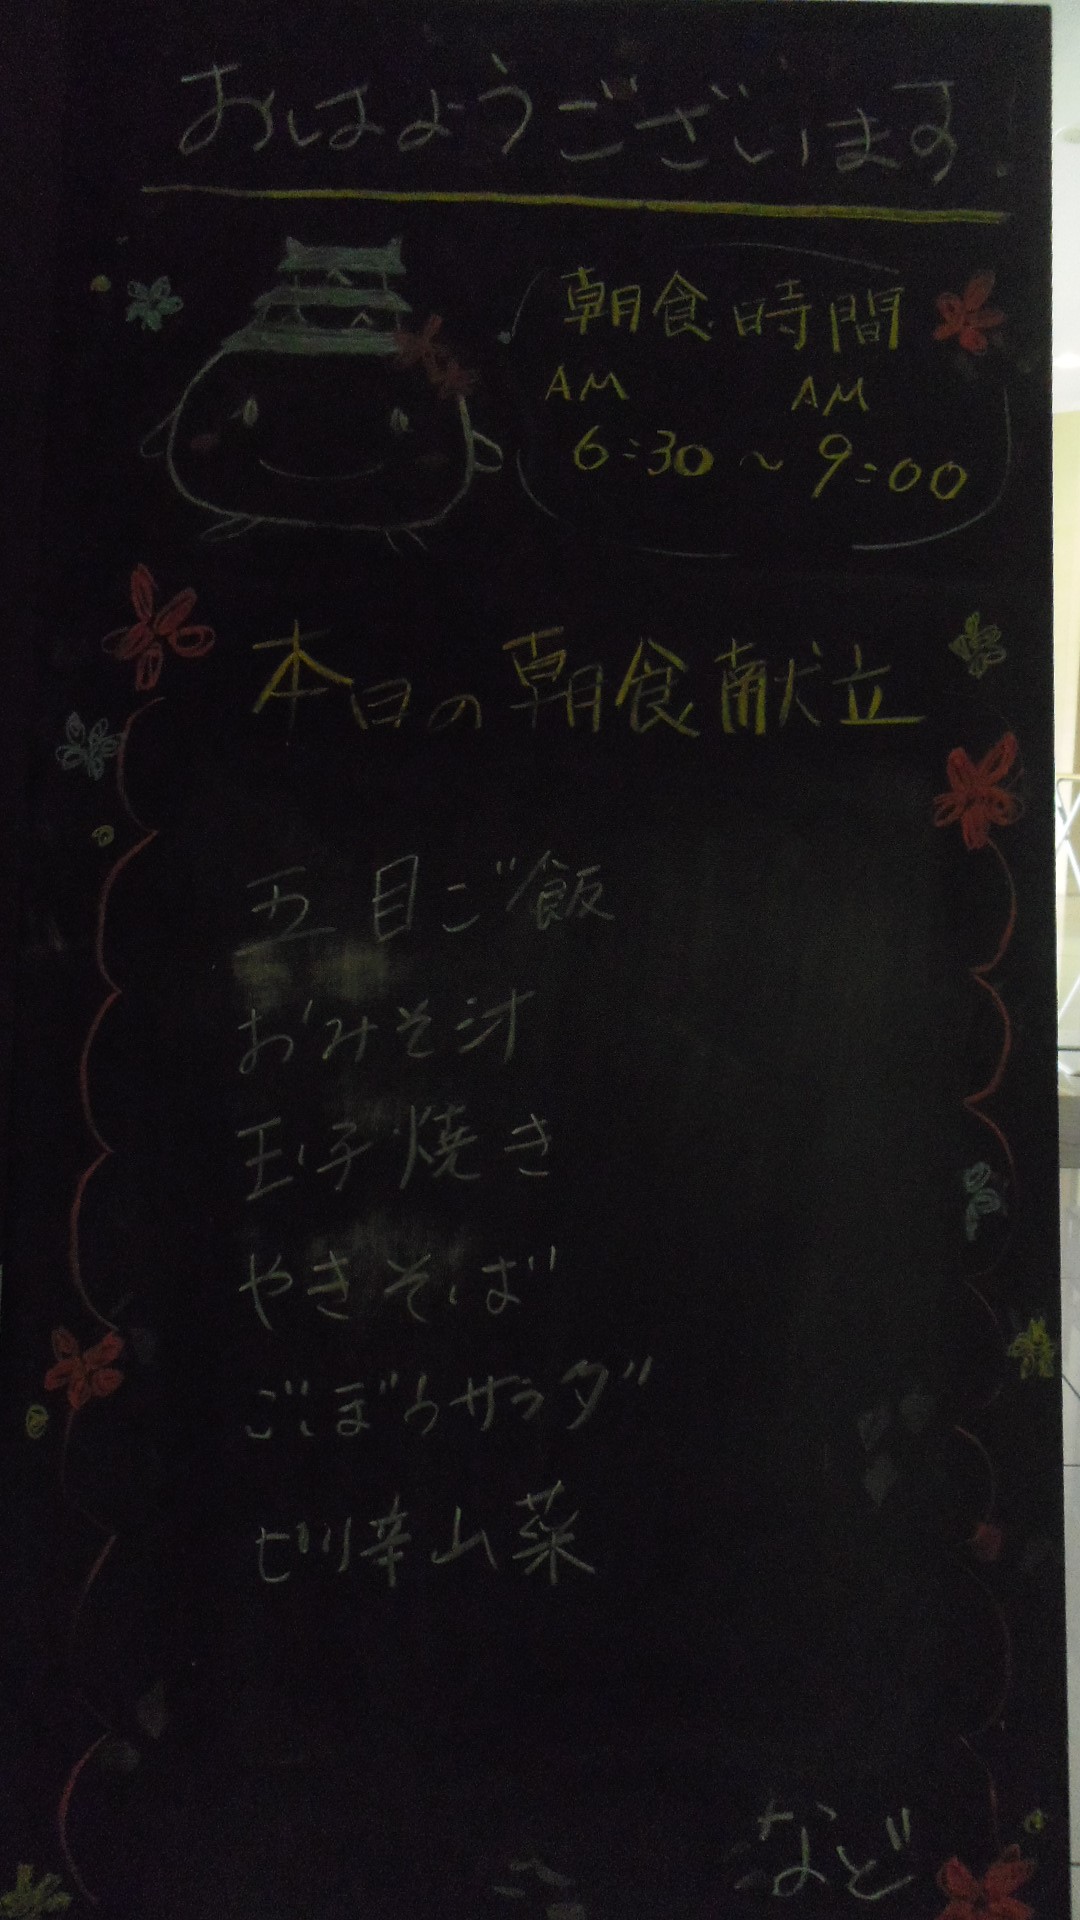 おはようございます!
朝食時間
AM AM
6:30～9:00
本日の朝食献立
五目ご飯
おみそ汁
玉子焼き
やきそば
ごぼうサラダ
山菜
など